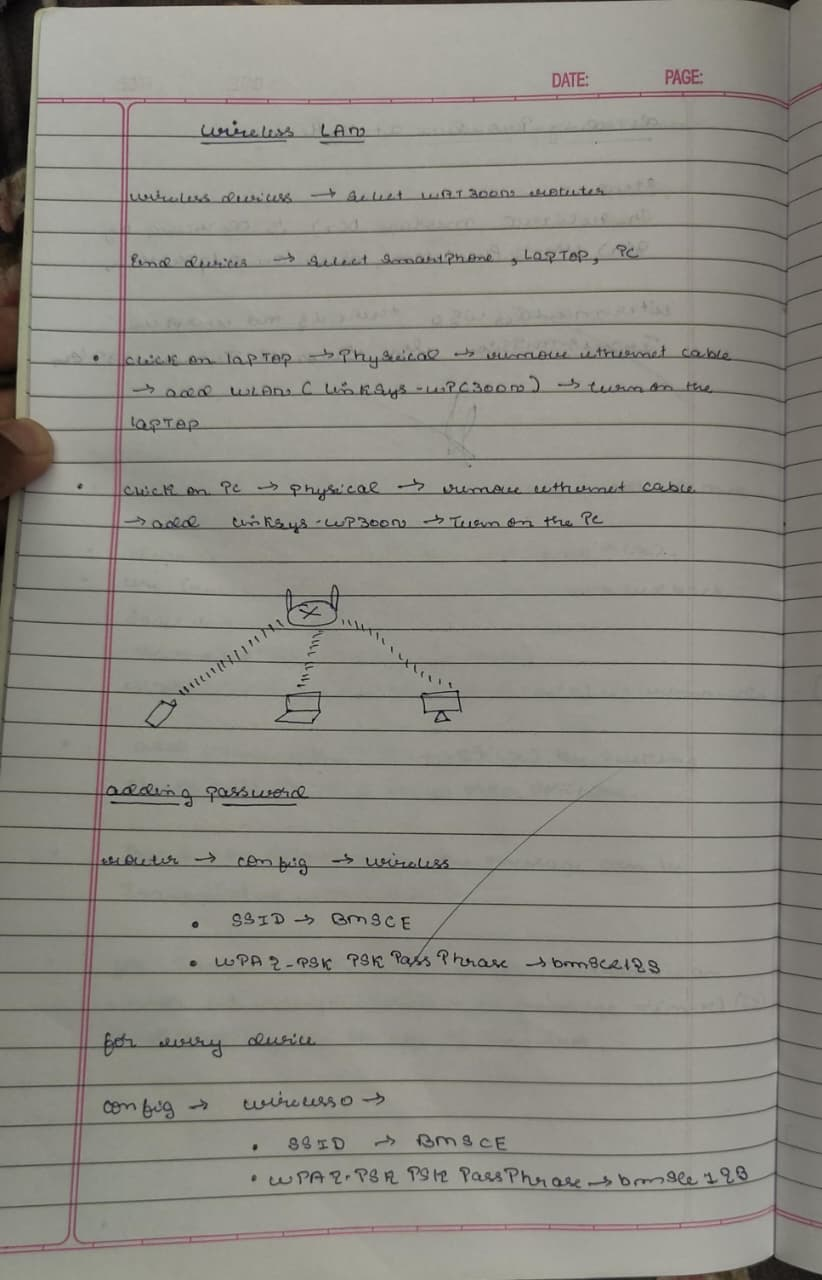 DATE: PAGE:
Wireless LAN
Wireless devices → Select WRT300N router
End devices → Select Smartphone, Laptop, PC
• Click on laptop → Physical → remove ethernet cable
→ add WLAN (Linksys-WPC300N) → turn on the
laptop
• Click on PC → physical → remove ethernet cable
→ add Linksys-WP300N → Turn on the PC
adding password
router → config → wireless
• SSID → BMSCE
• WPA2-PSK PSK Pass Phrase → bmsce123
for every device
config → wireless0 →
• SSID → BMSCE
• WPA2-PSK PSK Pass Phrase → bmsce123